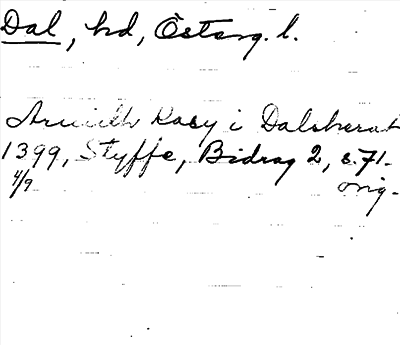 Dal, hd, Österg. l.
Arwidh Kasy i Dalshærat
1399, Styffe, Bidrag 2, s. 71.
4/9 orig.